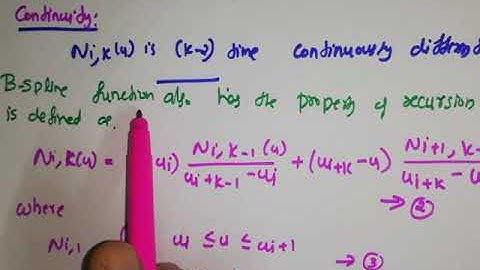 Continuity:
Ni,k(u) is (k-2) time continuously
B-spline function also has the property of recursion
is defined as.
Ni,k(u) = ui) Ni,k-1(u) / ui+k-1 - ui + (ui+k - u) Ni+1, k- / ui+k - u
→ ②
where
Ni,1 ui ≤ u ≤ ui+1
→ ③